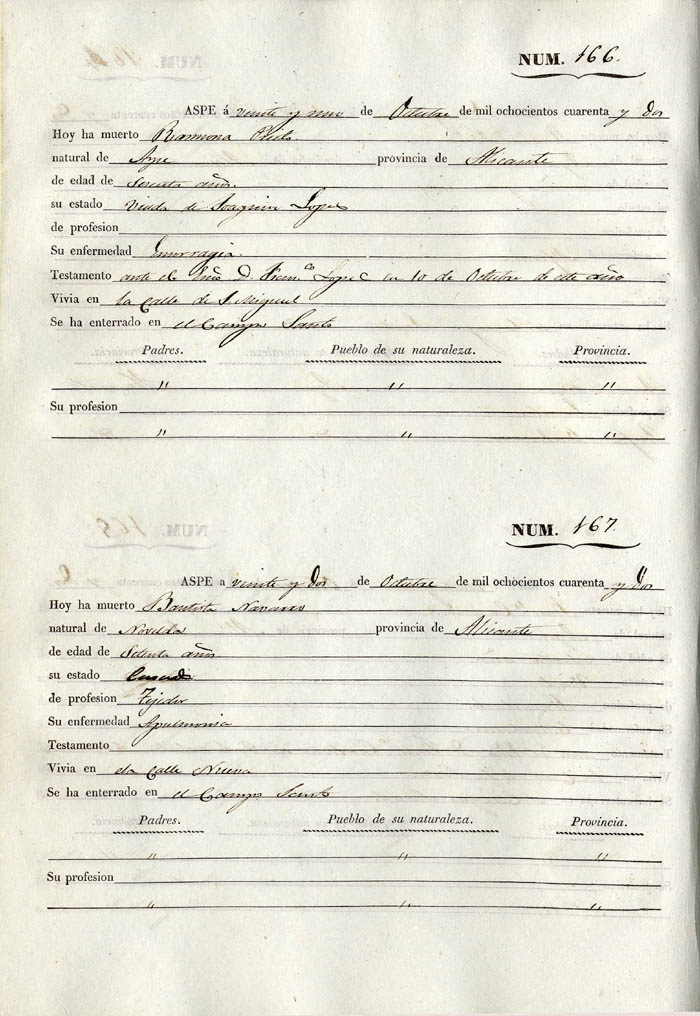 NUM. 166.
ASPE á veinte y uno de Octubre de mil ochocientos cuarenta y dos
Hoy ha muerto Ramona
natural de Aspe provincia de Alicante
de edad de años.
su estado Viuda de Joaquin Lopez
de profesion
Su enfermedad Emorragia.
Testamento ante el Esno D. Fran.co Lopez en 10 de Octubre de este año
Vivia en la Calle de S. Miguel
Se ha enterrado en el Campo Santo
Padres. Pueblo de su naturaleza. Provincia.
" " "
Su profesion
" " "
NUM. 167.
ASPE a veinte y dos de Octubre de mil ochocientos cuarenta y dos
Hoy ha muerto Bautista Navarro
natural de Novelda provincia de Alicante
de edad de Setenta años
su estado Casado
de profesion Tejedor
Su enfermedad Apulmonia
Testamento
Vivia en ela Calle Nueva
Se ha enterrado en el Campo Santo
Padres. Pueblo de su naturaleza. Provincia.
" " "
Su profesion
" " "